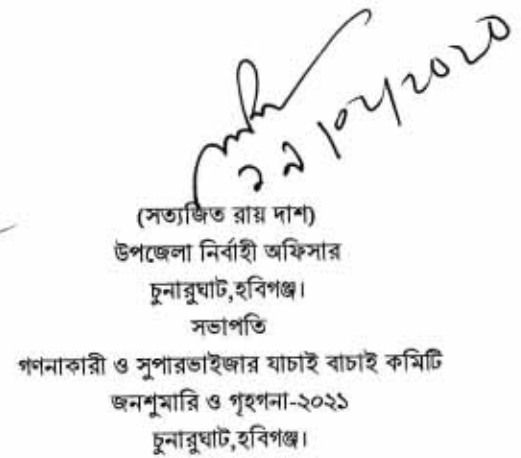 ২৯/০২/২০২০
(সত্যজিত রায় দাশ)
উপজেলা নির্বাহী অফিসার
চুনারুঘাট,হবিগঞ্জ।
সভাপতি
গণনাকারী ও সুপারভাইজার যাচাই বাচাই কমিটি
জনশুমারি ও গৃহগনা-২০২১
চুনারুঘাট,হবিগঞ্জ।